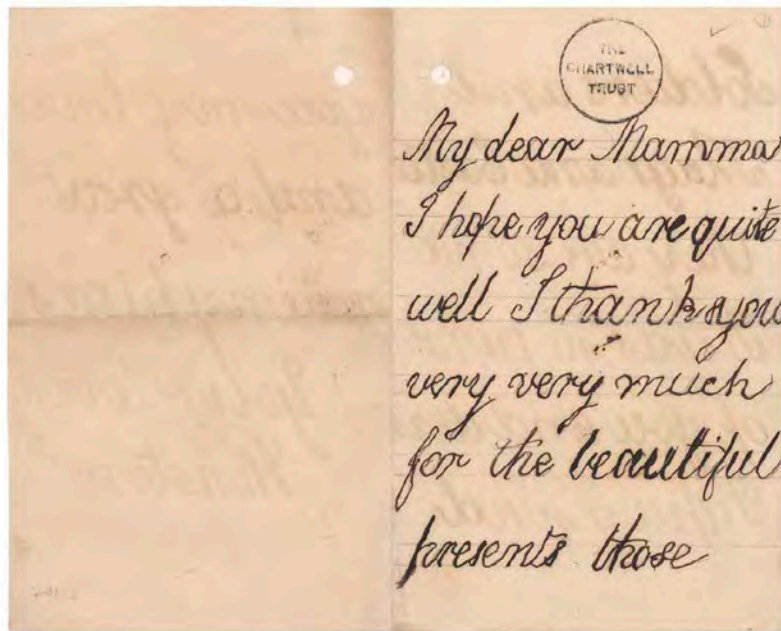 THE
CHARTWELL
TRUST
My dear Mamma
I hope you are quite
well I thank you
very very much
for the beautiful
presents those